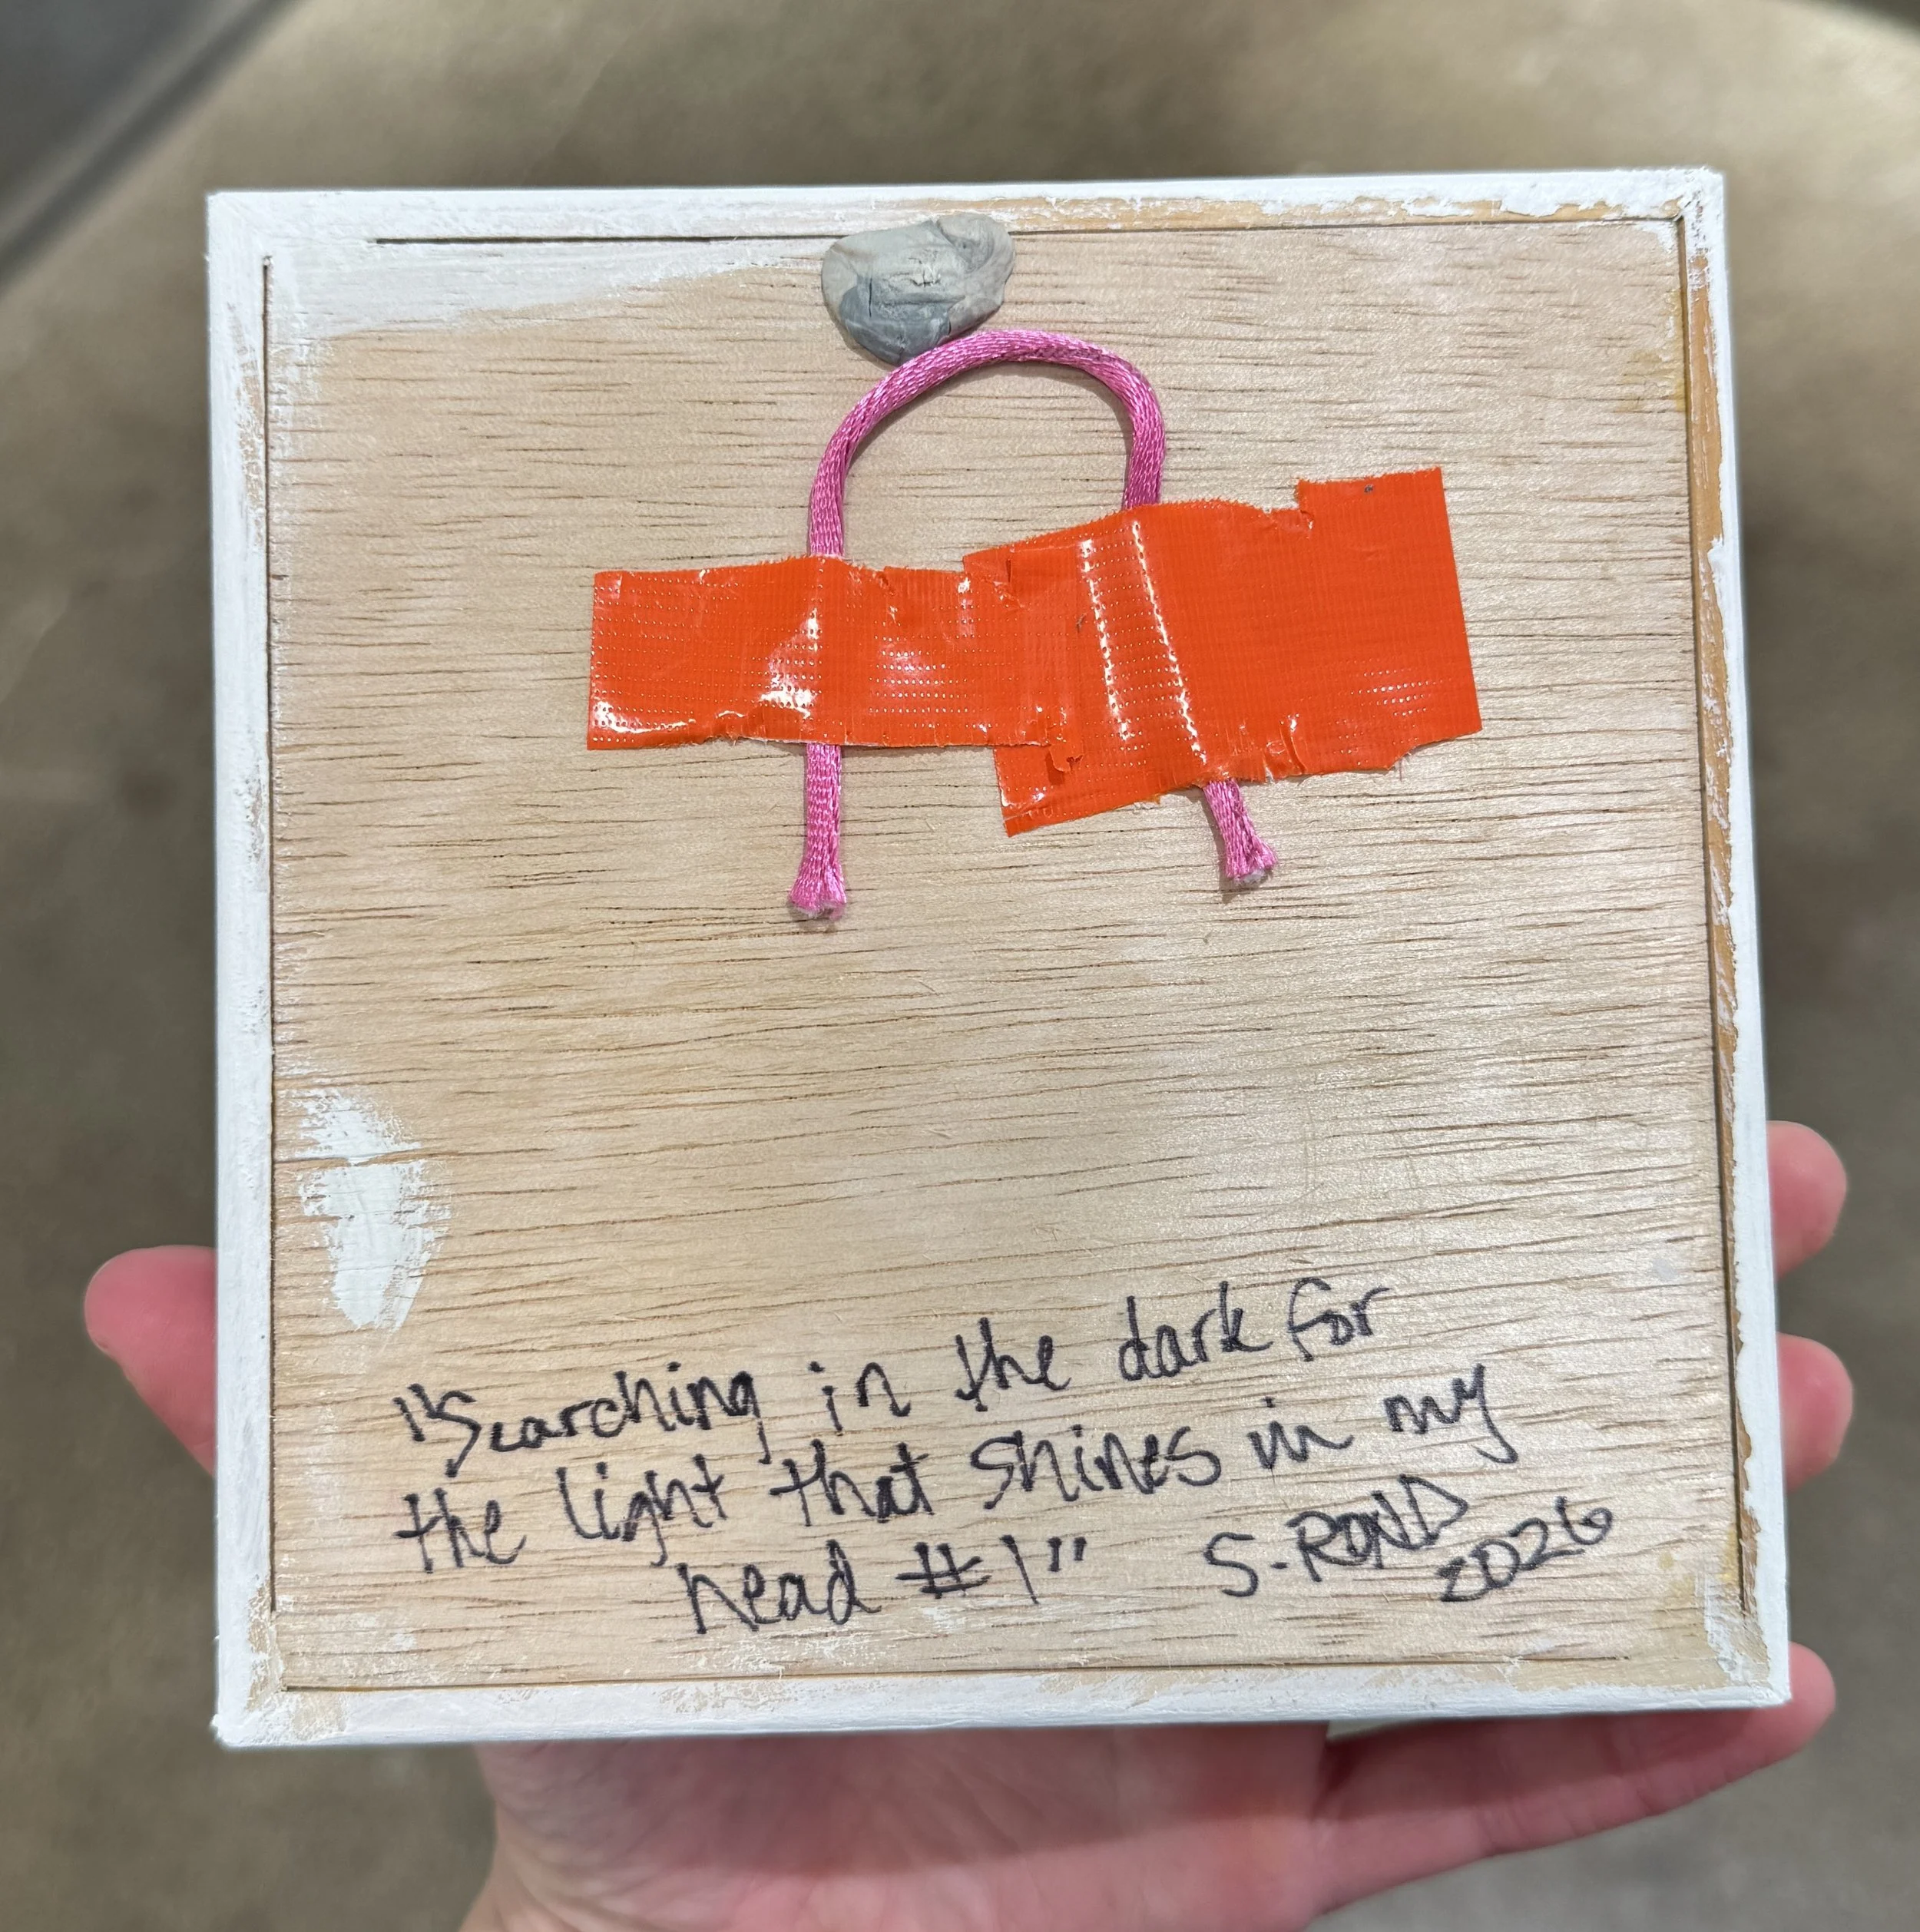 "Searching in the dark for
the light that shines in my
head #1" S-ROND
2026